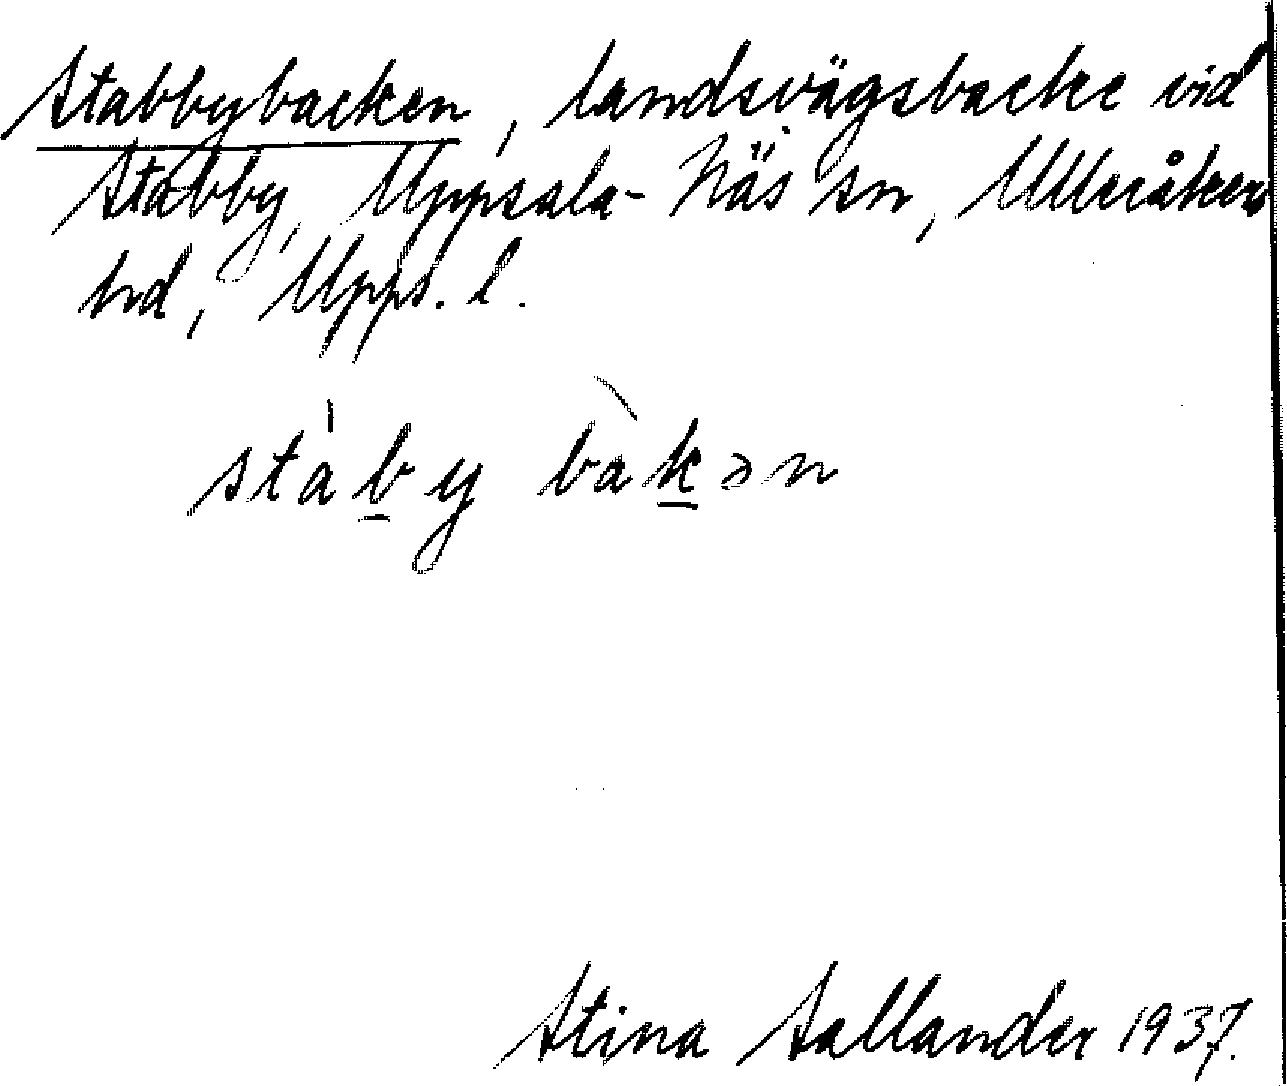 Stabbybacken, landsvägsbacke vid
Stabby, Uppsala-Näs sn, Ulleråkers
hd, Upps. l.
stàb̲y bàk̲ən
Stina Sallander 1937.